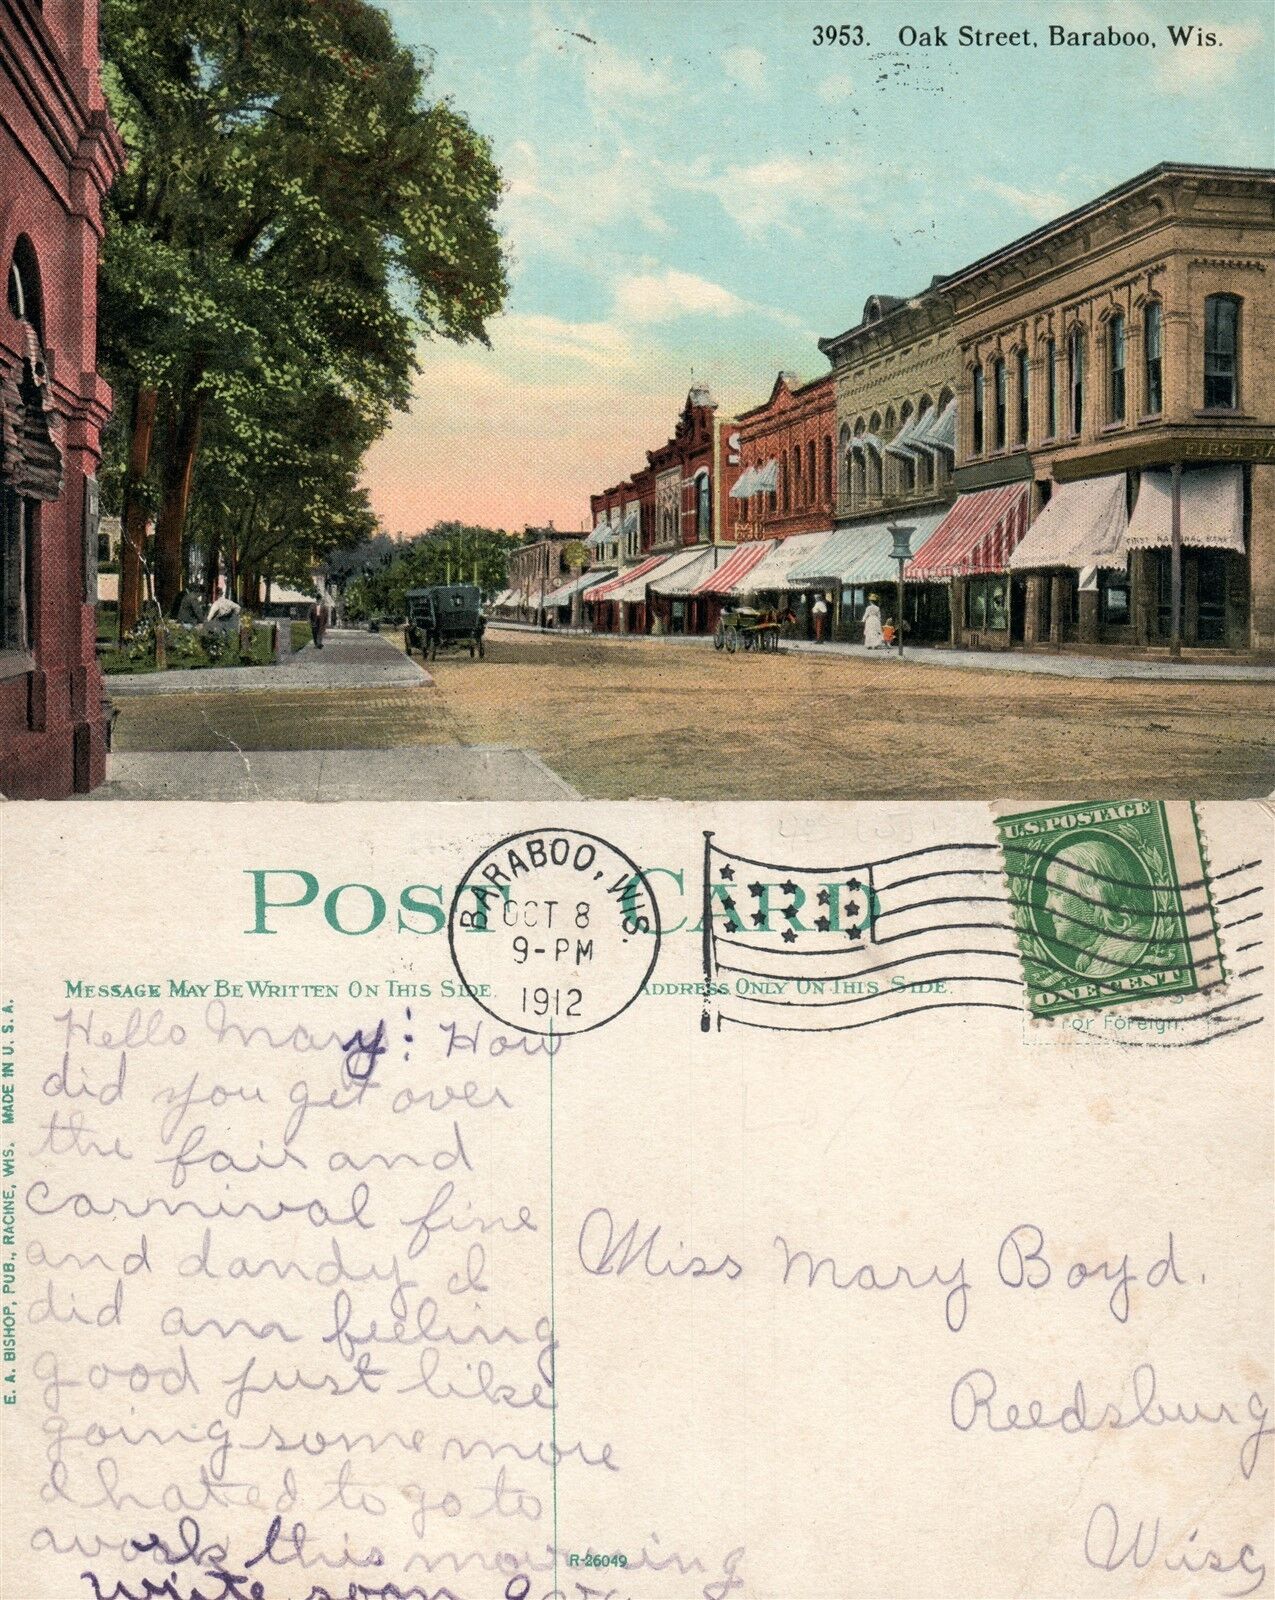 3953. Oak Street, Baraboo, Wis.
FIRST NA
FIRST NATIONAL BANK
POST CARD
BARABOO, WIS.
OCT 8
9-PM
1912
U.S. POSTAGE
ONE CENT
MESSAGE MAY BE WRITTEN ON THIS SIDE.
ADDRESS ONLY ON THIS SIDE.
For Foreign.
E. A. BISHOP, PUB., RACINE, WIS. MADE IN U. S. A.
Hello Mary: How
did you get over
the fair and
carnival fine
and dandy I
did am feeling
good just like
going some more
I hated to go to
work this morning
write soon
Miss Mary Boyd.
Reedsburg
Wisc
R-26049